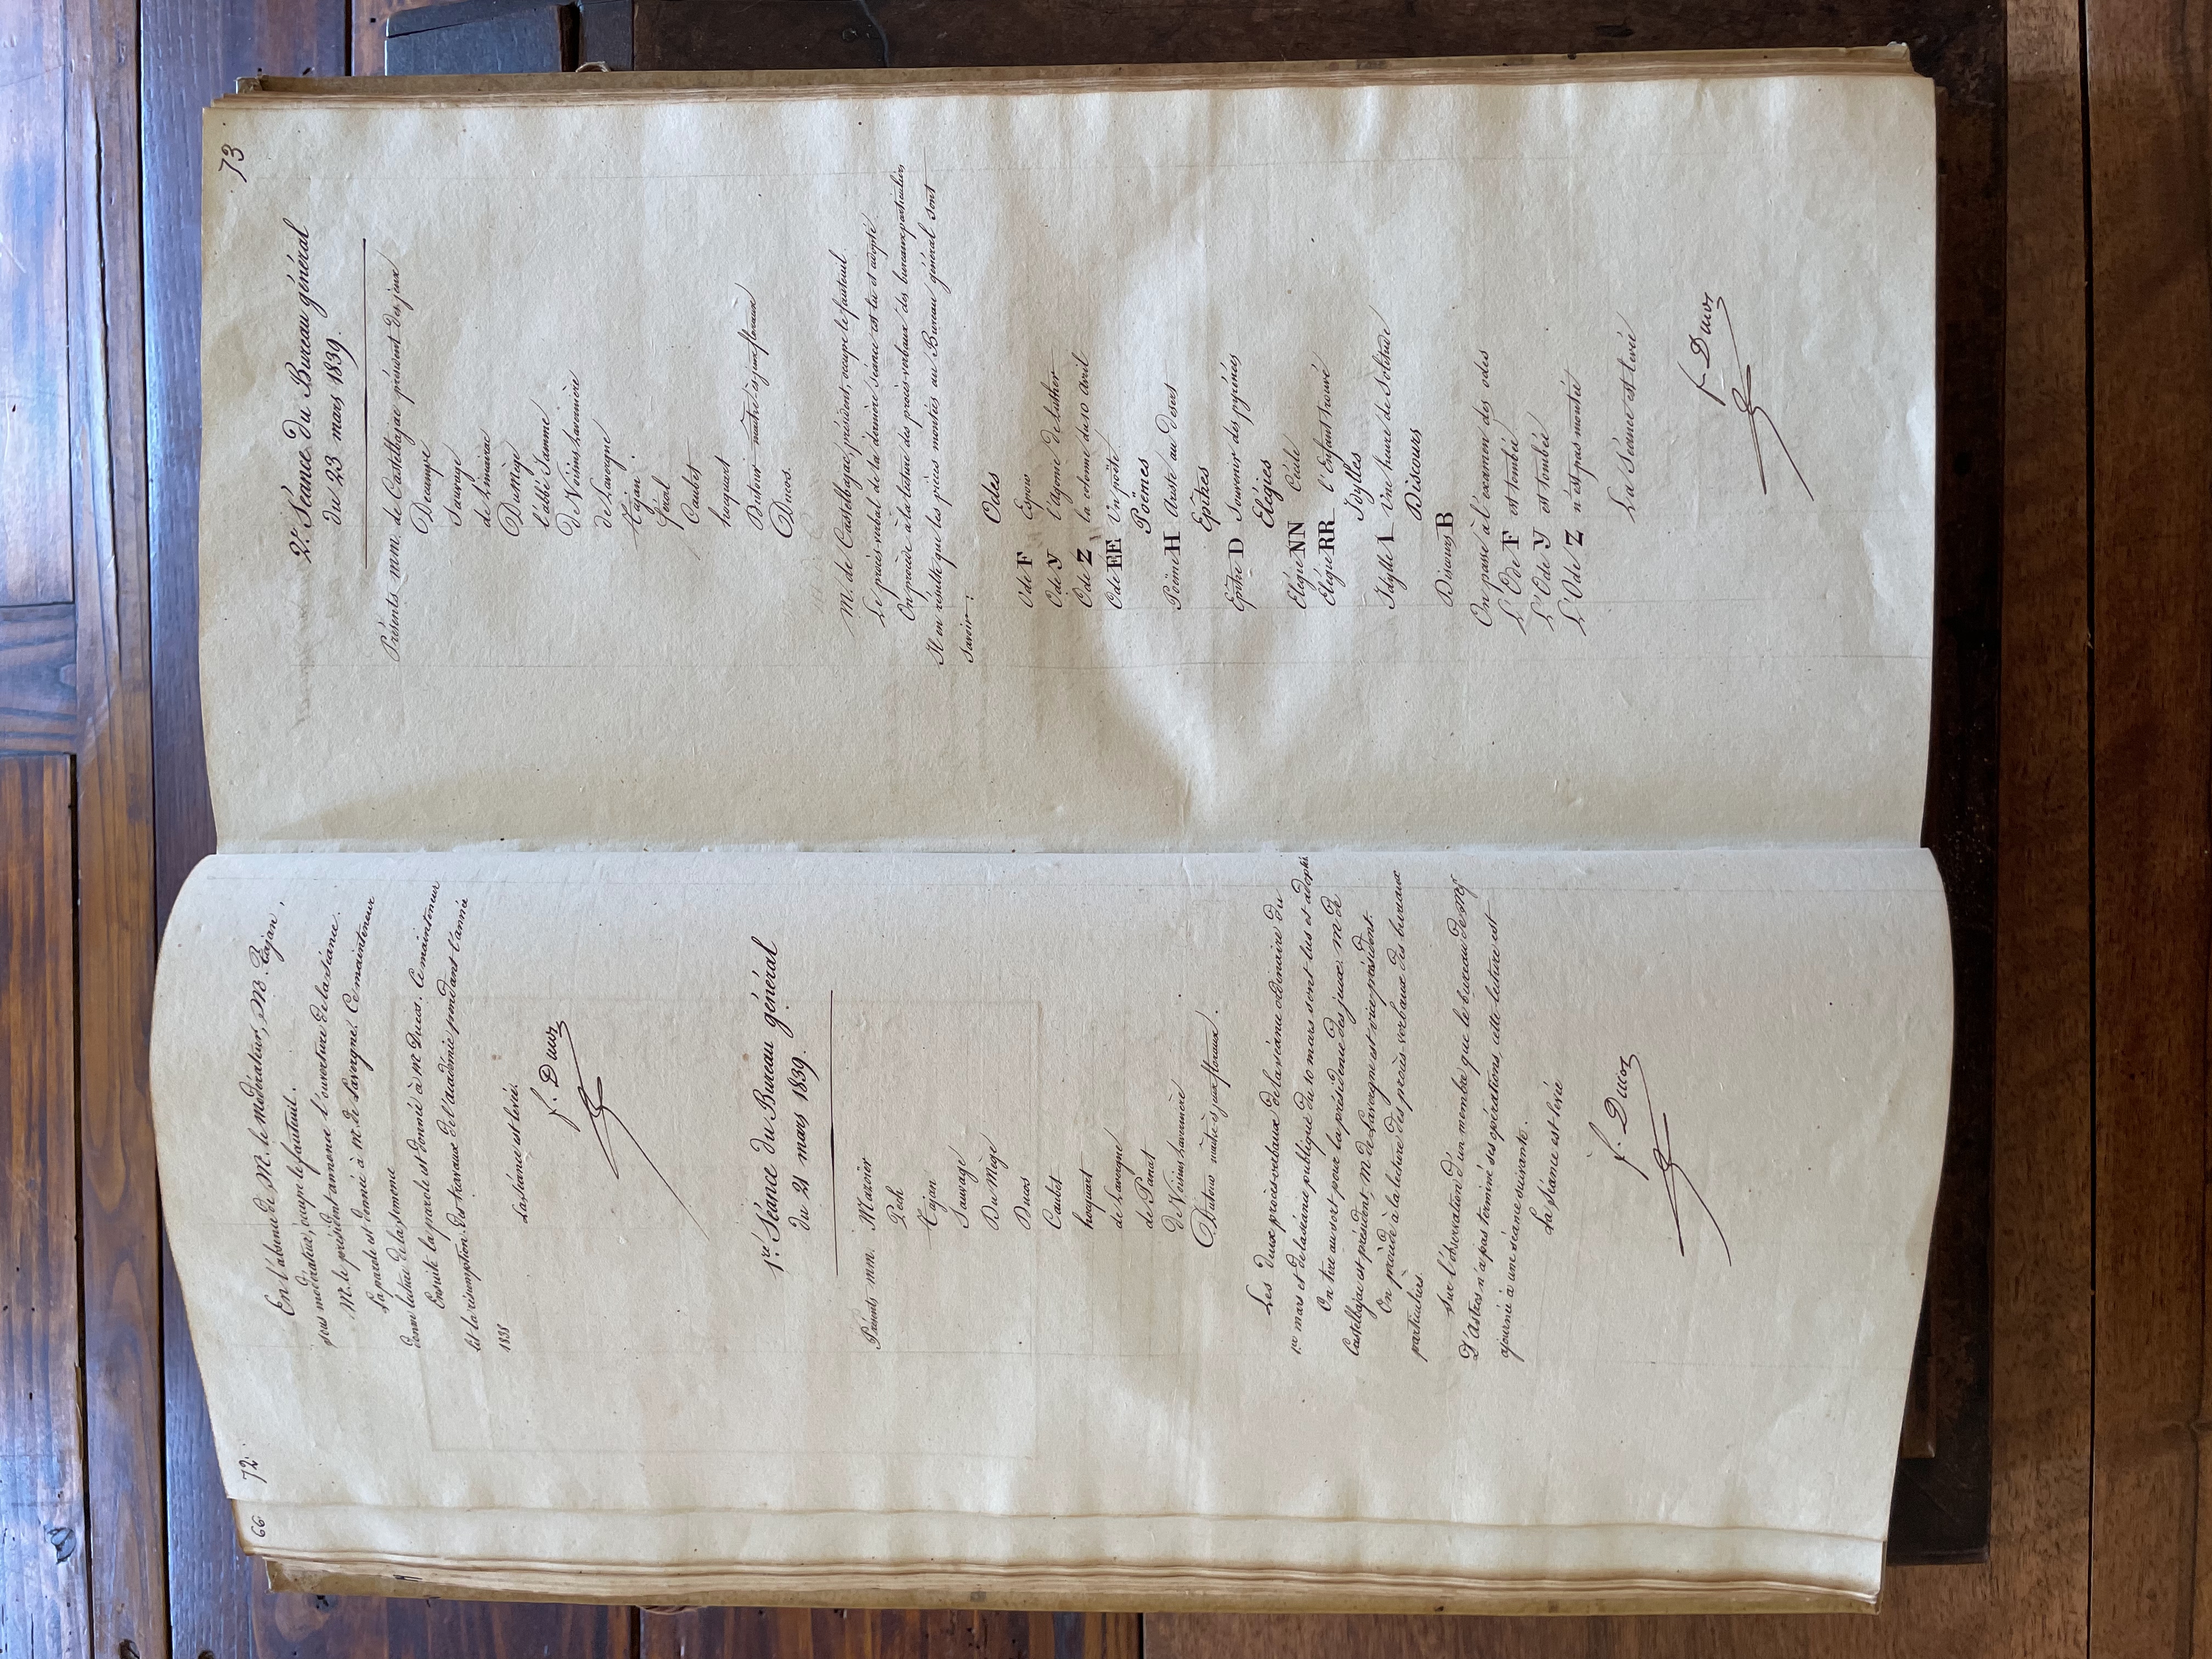 66
72.
En l'absence de M. le Modérateur, M. Cajan,
sous modérateur, occupe le fauteuil.
M. le président annonce l'ouverture de la séance.
La parole est donnée à M. de Lavergne. Ce mainteneur
donne lecture de la semonce
Ensuite la parole est donnée à M Ducos. Ce mainteneur
lit la résumption des travaux de l'académie pendant l'année
1838
La séance est levée.
f. Ducos
1re Séance du Bureau général
du 21 mars 1839.
Présents mm. Mazoier
Pech
Cajan
Sauvage
Du Mège
Ducos
Caubet
hocquart
de Lavergne
de Panat
de Voisins Lavernière
Dutour maître ès jeux floraux.
Les deux procès-verbaux de la séance ordinaire du
1er mars et de la séance publique du 10 mars sont lus et adoptés
On tire au sort pour la présidence des jeux. M de
Castelbajac est président, M de Lavergne est vice président.
On procède à la lecture des procès-verbaux des bureaux
particuliers.
Sur l'observation d'un membre que le bureau de Mgr
D'Astros n'a pas terminé ses opérations, cette lecture est
ajournée à une séance suivante.
La séance est levée
f. Ducos
73
2e. Séance du Bureau général
du 23 mars 1839.
Présents mm. de Castelbajac président des jeux
Decampe
Sauvage
de Limairac
Dumège
l'abbé Jamme
de Voisins Lavernière
de Lavergne
Cajan.
féral
Caubet
hocquart
Dutour maître-ès jeux floraux
Ducos.
M. de Castelbajac, président, occupe le fauteuil.
Le procès-verbal de la dernière séance est lu et adopté.
On procède à la lecture des procès-verbaux des bureaux particuliers
Il en résulte que les pièces montées au Bureau général sont
savoir:
Odes
Ode F Espoir
Ode Y l'Agonie de Luther
Ode Z la colonne du 10 avril
Ode EE Un poëte
Poëmes
Poëme H Auste au désert
Epîtres
Epître D Souvenir des pyrénées
Elégies
Elégie NN Cécile
Elégie RR l'Enfant trouvé
Idylles
Idylle I Une heure de Solitude
Discours
Discours B
On passe à l'examen des odes
L'Ode F est tombée
L'Ode Y est tombée
L'Ode Z n'est pas montée
La séance est levée
f. Ducos